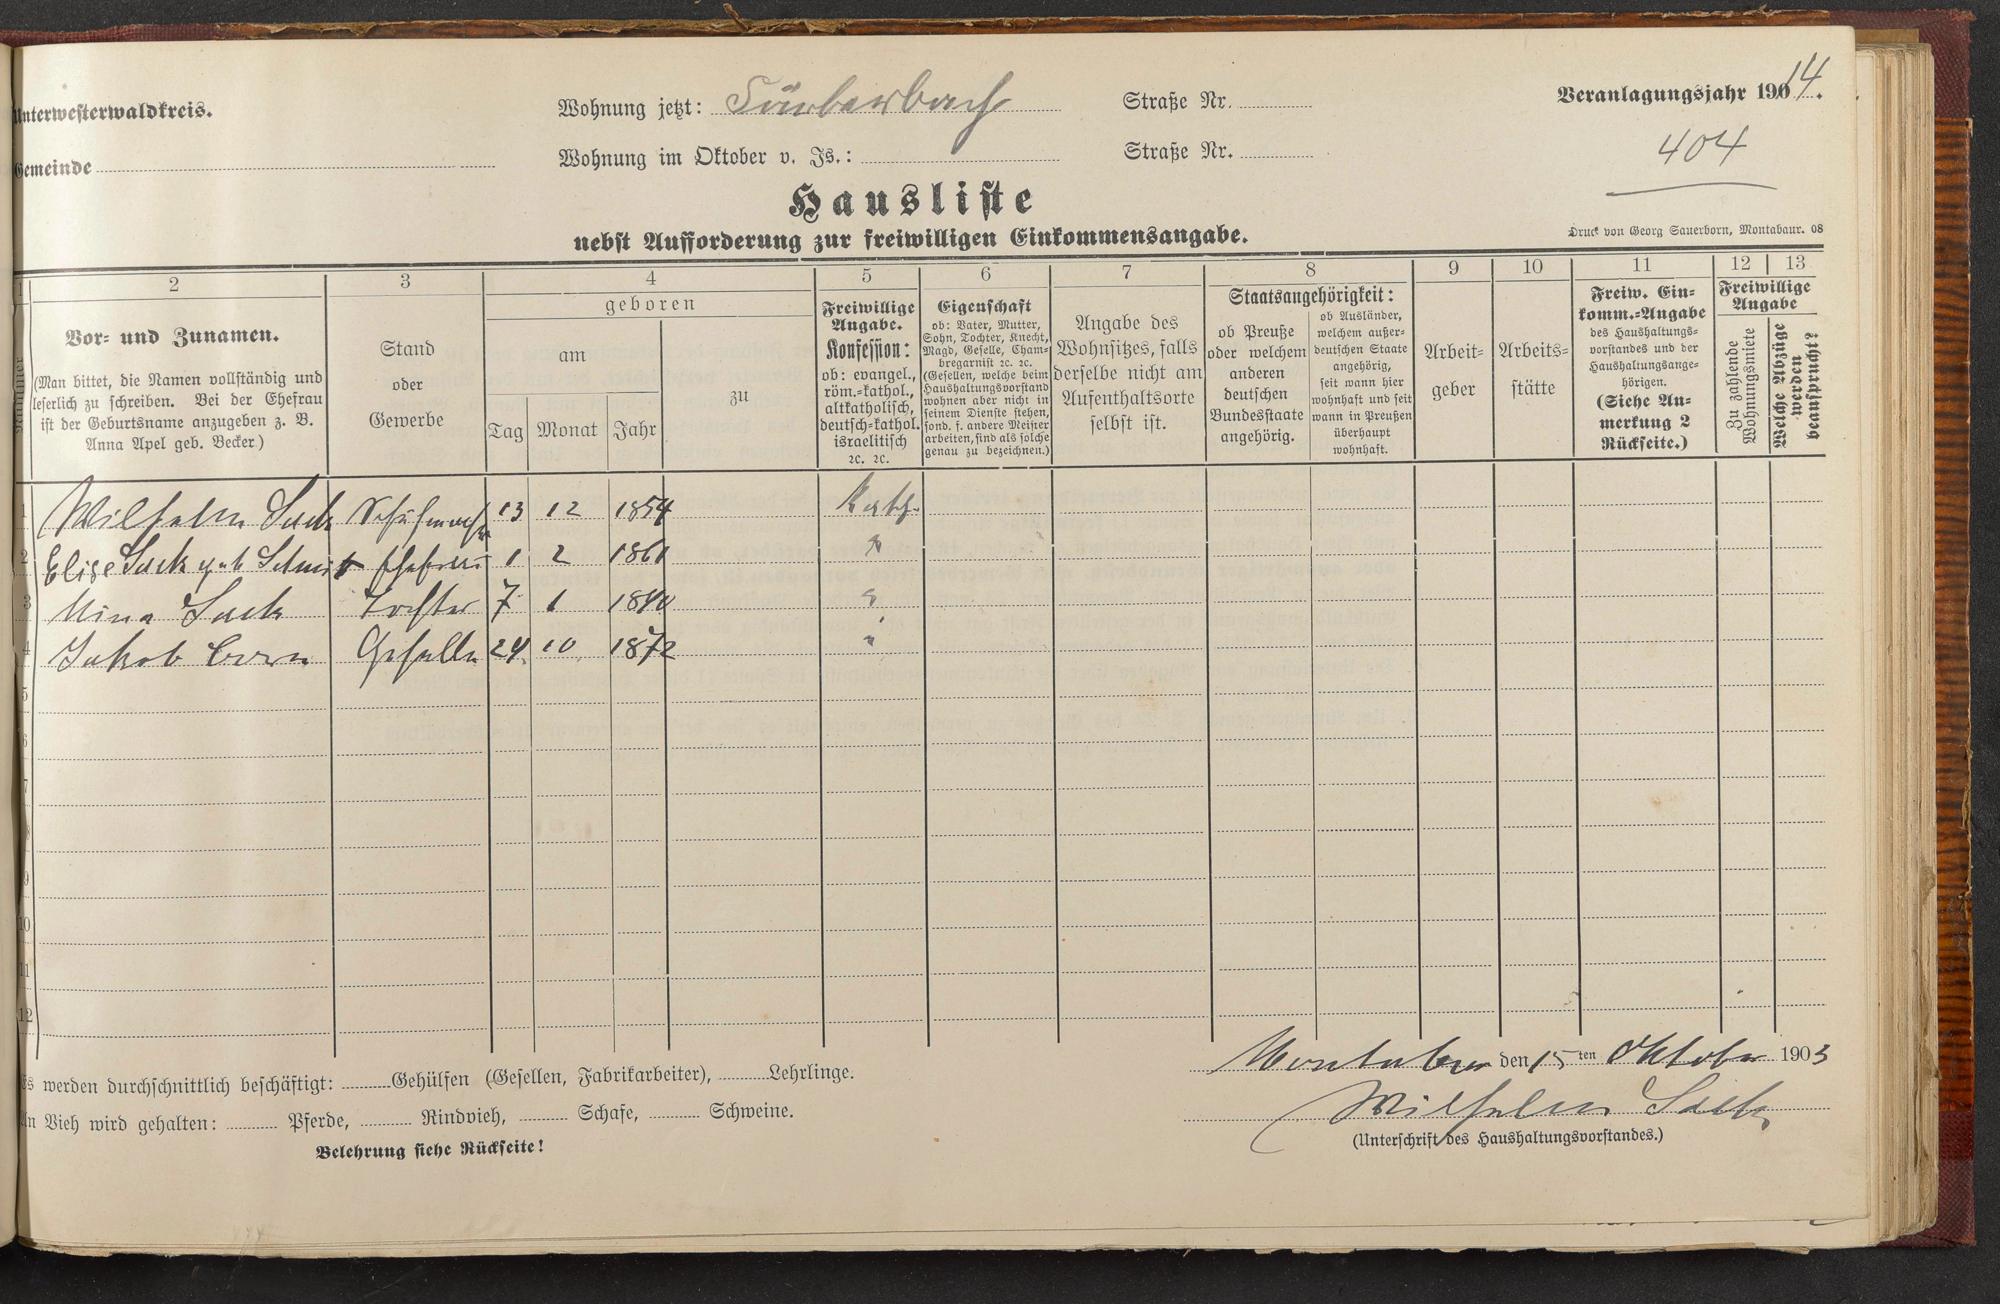 Unterwesterwaldkreis.
Wohnung jetzt: Sauerbach
Straße Nr.
Veranlagungsjahr 1904.
14
Gemeinde
Wohnung im Oktober v. Js.:
Straße Nr.
404
Hausliste
nebst Aufforderung zur freiwilligen Einkommensangabe.
Druck von Georg Sauerborn, Montabaur. 08
1 2 3 4 5 6 7 8 9 10 11 12 13
Nummer
Vor- und Zunamen.
(Man bittet, die Namen vollständig und
leserlich zu schreiben. Bei der Ehefrau
ist der Geburtsname anzugeben z. B.
Anna Apel geb. Becker.)
Stand
oder
Gewerbe
geboren
am
Tag Monat Jahr
zu
Freiwillige
Angabe.
Konfession:
ob: evangel.,
röm.-kathol.,
altkatholisch,
deutsch-kathol.
israelitisch
ꝛc. ꝛc.
Eigenschaft
ob: Vater, Mutter,
Sohn, Tochter, Knecht,
Magd, Geselle, Cham-
bregarnist ꝛc. ꝛc.
(Gesellen, welche beim
Haushaltungsvorstand
wohnen aber nicht in
seinem Dienste stehen,
sond. f. andere Meister
arbeiten, sind als solche
genau zu bezeichnen.)
Angabe des
Wohnsitzes, falls
derselbe nicht am
Aufenthaltsorte
selbst ist.
Staatsangehörigkeit:
ob Preuße
oder welchem
anderen
deutschen
Bundesstaate
angehörig.
ob Ausländer,
welchem außer-
deutschen Staate
angehörig,
seit wann hier
wohnhaft und seit
wann in Preußen
überhaupt
wohnhaft.
Arbeit-
geber
Arbeits-
stätte
Freiw. Ein-
komm.-Angabe
des Haushaltungs-
vorstandes und der
Haushaltungsange-
hörigen.
(Siehe An-
merkung 2
Rückseite.)
Freiwillige
Angabe
Zu zahlende
Wohnungsmiete
Welche Abzüge
werden
beansprucht?
1 Wilhelm Sack Schuhmacher 13 12 1854 Kath.
2 Elise Sack geb Schmit Ehefrau 1 2 1861 "
3 Mina Sack Tochter 7 1 "
4 Jakob Geselle 24 10 1872 "
5
6
7
8
9
10
11
12
Es werden durchschnittlich beschäftigt: Gehülfen (Gesellen, Fabrikarbeiter), Lehrlinge.
Montabaur den 15ten Oktober 1903
An Vieh wird gehalten: Pferde, Rindvieh, Schafe, Schweine.
Wilhelm Sack
Belehrung siehe Rückseite!
(Unterschrift des Haushaltungsvorstandes.)